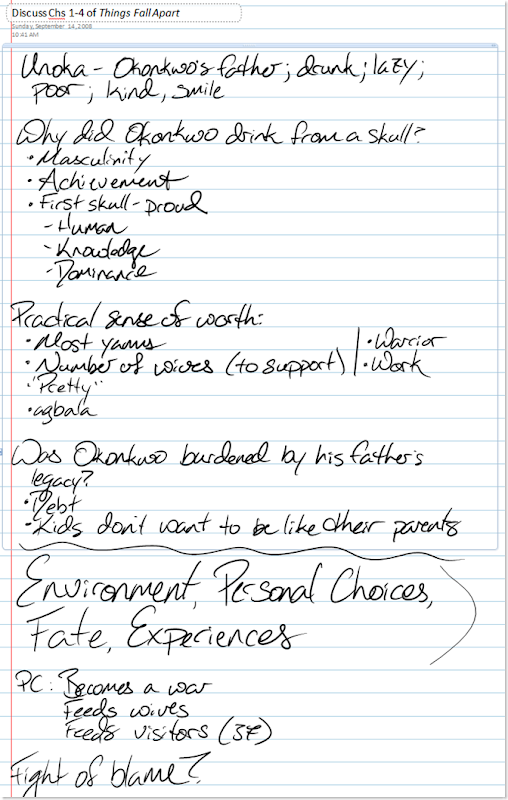 Discuss Chs 1-4 of Things Fall Apart
Sunday, September 14, 2008
10:41 AM
Unoka - Okonkwo's father; drunk; lazy;
poor; kind, smile
Why did Okonkwo drink from a skull?
• Masculinity
• Achievement
• First skull - proud
- Human
- Knowledge
- Dominance
Practical sense of worth:
• Most yams
• Number of wives (to support)
• "Pretty"
• agbala
• Warrior
• Work
Was Okonkwo burdened by his father's
legacy?
• Debt
• Kids don't want to be like their parents
Environment, Personal Choices,
Fate, Experiences
PC: Becomes a war
Feeds wives
Feeds visitors (37)
Fight of blame?